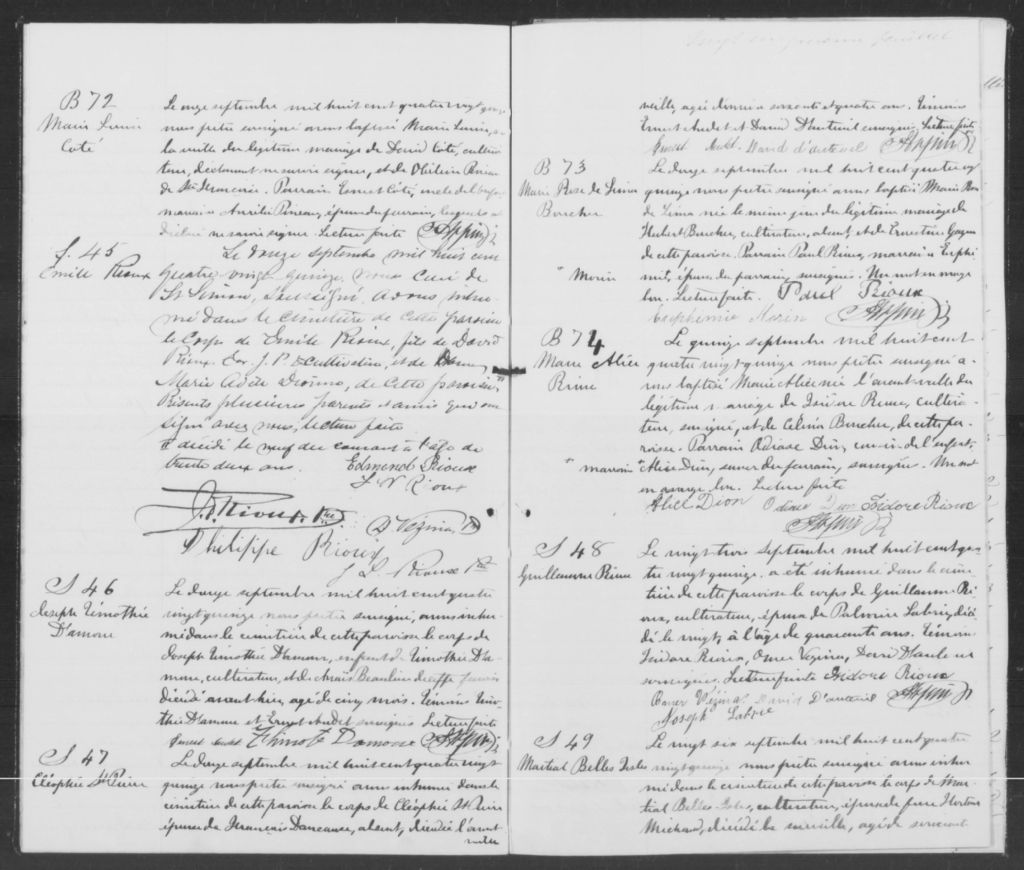 B 72
Marie Louise
Coté
Le onze septembre mil huit cent quatre vingt quinze
nous prêtre soussigné avons baptisé Marie Louise,
la veille du légitime mariage de David Coté, cultiva
teur, déclarant ne savoir signer, et de Otilie
de St Francois. Parrain Ernest Coté, oncle del
marraine Aurélie Pineau, épouse du parrain, lesquels
ne savoir signer. Lecture faite
S. 45
Emile Rioux
Le douze septembre mil huit cent
quatre vingt quinze, nous Curé de
St Simon, soussigné, avons inhu
mé dans le cimetière de cette paroisse
le corps de Emile Rioux, fils de David
Rioux J. P. & cultivateur, et de Dame
Marie Adèle Drouin, de cette paroisse
Présents plusieurs parents et amis qui ont
signé avec nous, lecture faite
# décédé le neuf du courant à l'âge de
trente deux ans. Edmond Rioux
J N Rioux
Rioux Ptre D Vézina Ptre
Philippe Rioux
J L Rioux Ptre
S 46
Joseph Timothée
D'amour
Le douze septembre mil huit cent quatre
vingt quinze nous prêtre soussigné, avons inhu
mé dans le cimetière de cette paroisse le corps de
Joseph Timothée D'amour, enfant de Timothée D'a
mour, cultivateur, et de Beaulieu de cette paroisse
décédé avant hier, agé de cinq mois. Témoins Timo
thée D'amour et Ernest Audet soussignés Lecture faite
Ernest Audet Thimoté Damour
S 47
Cléophée St Pierre
Le douze septembre mil huit cent quatre vingt
quinze nous prêtre soussigné avons inhumé dans le
cimetière de cette paroisse le corps de Cléophée St Pierre
épouse de Francois Dancause, absent, décédée l'avant
veille
veille, agée d'environ soixante et quatre ans. Témoins
Ernest Audet et David D'auteuil soussignés, Lecture faite
Ernest Audet David d'auteuil
B 73
Marie Rose de Lima
Boucher
Le douze septembre mil huit cent quatre vingt
quinze nous prêtre soussigné avons baptisé Marie Rose
de Lima née le même jour du légitime mariage de
Hubert Boucher, cultivateur, absent, et de Ernestine Gagnon
de cette paroisse. Parrain Paul Rioux, marraine Euphé
" Morin
mie", épouse du parrain, soussignés. Un mot en marge
bon. Lecture faite. Paul Rioux
Euphemie Morin
B 74
Marie Alice
Rioux
Le quinze septembre mil huit cent
quatre vingt quinze nous prêtre soussigné a
vons baptisé Marie Alice née l'avant-veille du
légitime mariage de Isidore Rioux, cultiva
teur, soussigné, et de Célina Boucher, de cette pa
roisse. Parrain Odiase Dion, cousin de l'enfant,
" marraine
" Alice Dion, soeur du parrain, soussignés. Un mot
en marge bon. Lecture faite
Alice Dion Dion Isidore Rioux
S 48
Guillaume Rioux
Le vingt trois septembre mil huit cent qua
tre vingt quinze, a été inhumé dans le cime
tière de cette paroisse le corps de Guillaume Ri
oux, cultivateur, époux de décé
dé le vingt, à l'âge de quarante ans. Témoins
Isidore Rioux, Omer Vézina, David D'auteuil
soussignés. Lecture faite Isidore Rioux
Omer Vézina David D'auteuil
Joseph
S 49
Martial Belles Isles
Le vingt six septembre mil huit cent quatre
vingt quinze nous prêtre soussigné avons inhu
mé dans le cimetière de cette paroisse le corps de Mar
tial Belles-Isles, cultivateur, époux de feue
Michaud, décédé la surveille, agé de